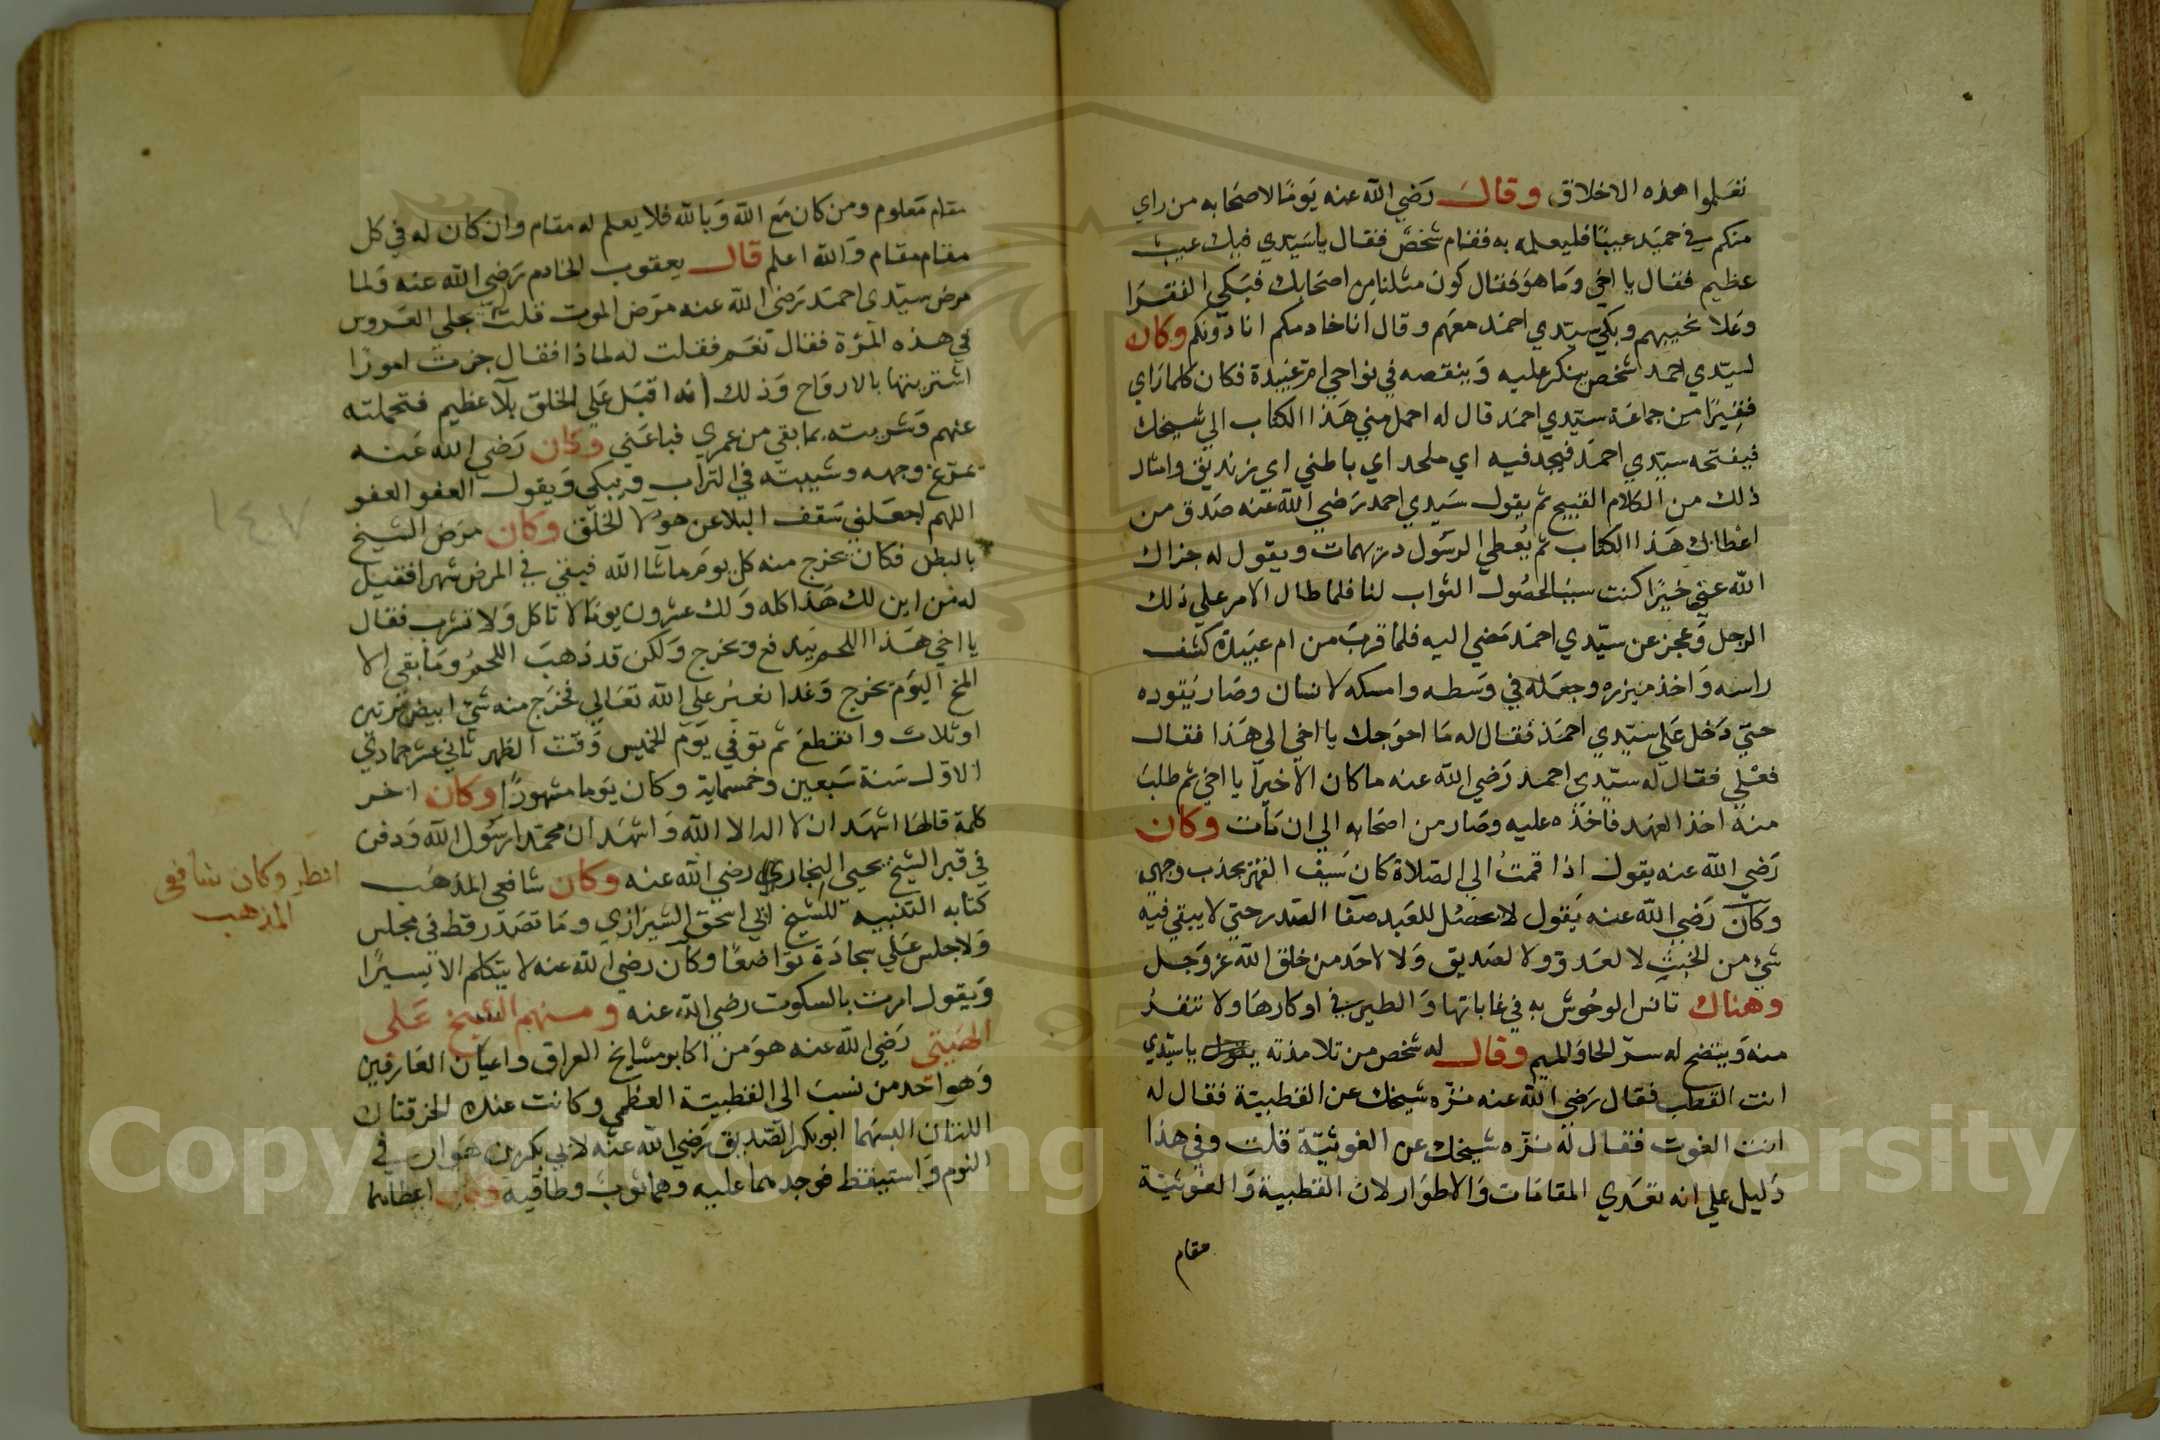 تعلموا هذه الاخلاق وقال رَضي الله عنه يَومًا لاصحَابه من راي
منكم في حميَد عيبًا فليعلمه به فقام شخصٌ فقال ياسَيّدي فيك عيب
عظيم فقال يا اخي وَما هوَ فقال كون مثلنا من اصحَابك فبَكي الفقرَا
وَعَلا نحيبهم وبكي سيّدي احمَد معهم وقال انا خادمكم انا دونكم وكان
لسيّدي احمد شخص ينكر عليه وَينقصه في نواحي ام عَبيدة فكان كلما رَاي
فقيرًا من جماعَة سيّدي احمَد قال له احمل مني هَذا الكتاب الي شيخك
فيفتحه سيّدي احمَد فيجد فيه اي ملحد اي باطني اي زنديق وامثال
ذلك من الكلام القبيح ثم يقول سَيدي احمد رَضي الله عنه صَدق من
اعْطاك هَذا الكتاب ثم يُعطي الرسُول دريهمات ويقول له جزاك
الله عني خيرًا كنت سببَا لحصُول الثواب لنا فلما طال الامر علي ذلك
الرجل وَعجز عن سيّدي احمَد مَضي اليه فلما قربَ من ام عَبيدة كشف
راسه وَاخذ ميزره وجعَله في وَسطه وامسكه لانسان وصَار يَقوده
حتي دَخل عَلي سيّدي احمَد فقال له مَا احوَجك يا اخي الي هَذا فقال
فعْلي فقال له سيّدي احمد رَضي الله عنه ما كان الا خيرا يا اخي ثم طلبَ
منه اخذ العهد فاخذه عليه وصَار من اصحَابه الي ان مَات وكان
رَضي الله عنه يقول اذا قمتُ الي الصّلاة كان سَيف القهر يجذب وجهي
وكان رَضي الله عنه يَقول لا يحصُل للعَبد صَفا الصّدر حتي لا يبقي فيه
شيء من الخبث لا لعَدو ولا لصَديق وَلا لاحَد من خلق الله عز وَجل
وهناك تانس الوحُوش به في غاباتها وَالطير في اوكارهَا ولا تنفرُ
منه وَيتضح له سرّ الحا وَالميم وقال له شخص من تلامذته ياسيّدي
انت القطب فقال رَضي الله عنه نزّه شيخك عن القطبيّة فقال له
انت الغوث فقال لهُ نزّه شيخك عن الغوثيّة قلت وفي هذا
دَليل علي انه تعَدي المقامَات وَالاطوَار لان القطبية وَالغوثيّة
مقام
مقام مَعلوم ومن كان مَع الله وَبالله فلا يعلم له مقام وان كان له في كل
مقام مقام وَالله اعلم قال يعقوب الخادم رَضي الله عنه وَلما
مرض سيّدي احمَد رَضي الله عنه مرَض الموت قلت تجلي العَروس
في هذه المرّة فقال نعَم فقلت له لماذا فقال جرت امورًا
اشتريناها بالاروَاح وَذلك انه اقبَل عَلي الخلق بلآ عظيم فتحملته
عنهم وَشريته بما بقي من عمري فباعَني وكان رَضي الله عَنه
يمرّغ وجهه وشيبته في التراب ويَبكي وَيقول العفو العفو
اللهم اجعَلني سَقف البلا عن هولا الخلق وكان مرَض الشيخ
بالبطن فكان يخرج منه كل يوم ما شآ الله فبقي في المرض شهرا فقيل
له من اين لك هَذا كله وَلك عشرون يومًا لا تاكل وَلا تشرب فقال
يا اخي هَذا اللحم يَندفع ويخرج وَلكن قد ذهبَ اللحمُ وَمَا بقي الا
المخ اليَوم يخرج وَغدا نعبر علي الله تعَالي فخرَج منه شيْ ابيض مرتين
او ثلاث وانقطعَ ثم توفي يَوم الخميس وَقت الظهر ثاني عشر جمادي
الاول سَنة سَبعين وخمسماية وكان يَوما مشهودًا وكان اخر
كلمة قالهَا اشهَد ان لا اله الا الله وَاشهَد ان محمّدا رسُول الله وَدفن
في قبر الشيخ يحيي البخاري رضي الله عنه وكان شافعي المذهَب
كتابه التنبيه للشيخ ابي اسحق الشيرازي وَما تصَدّر قط في مجلس
وَلا جلس عَلي سجادَة توَاضعًا وكان رضي الله عنه لا يتكلم الا يَسيرًا
وَيقول امرت بالسكوت رضي الله عنه ومنهم الشيخ عَلي
الهيتي رَضي الله عنه هوَ من اكابر مشايخ العراق واعيان العَارفين
وَهو احَد من نسبَ الي القطبيّة العظمي وكانت عنده الخرقتان
اللتان البسَهما ابو بكر الصّديق رَضي الله عنه لابي بكر بن هوَار في
النوم وَاستيقظ فوجدهما عليه وهما ثوبٌ وطاقيه وكان اعطاهما
انظر وكان شافعي
المذهب
١٤٧